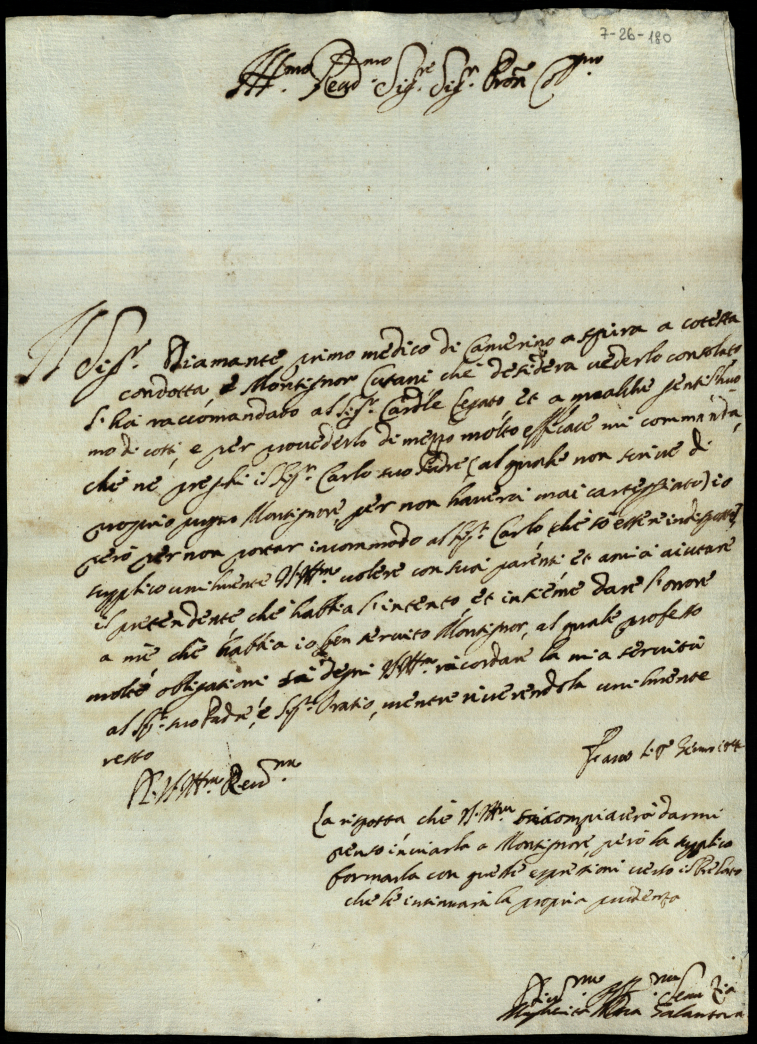 7-26-180
Ill.mo Rev.mo Sig.re Sig.r Pron Co
Il Sig.r Diamante primo medico di Camerino aspira a cotesta
condotta, e Monsignor che desidera vederlo consolato
l'ha raccomandato al Sig.r Card.le Legato et a qualche gentilhuo
mo di costì, e per provederlo di mezzo molto efficace mi commanda,
che ne preghi il Sig.r Carlo suo Padre (al quale non scrive di
proprio pugno Monsignore, per non haver mai carteggiato) io
però per non portar incommodo al Sig.r Carlo che so essere
supplico umilmente V.S. Ill.ma volere con suoi parenti et amici aiutare
il pretendente che habbia l'intento, et insieme dare l'onore
a me che habbia io ben servito Monsignor, al quale professo
molte obligationi si degni V.S. Ill.ma ricordare la mia servitù
al Sig.r suo Padre, e Sig.r Oratio, mentre riverendola umilmente
resto
Di V.S. Ill.ma Rev.ma
La risposta che V.S. Ill.ma si compiacerà darmi
penso inviarla a Monsignore, però la supplico
formarla con quelle espressioni verso il Prelato
che le insinuarà la propria prudenza